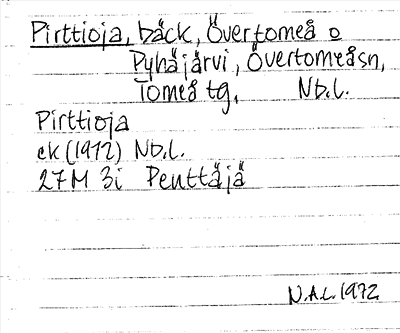 Pirttioja, bäck, Övertorneå o
Pyhäjärvi, Övertorneåsn,
Torneå tg. Nb.l.
Pirttioja
ek (1972) Nb.l.
27M 3i Penttäjä
N.A.L. 1972